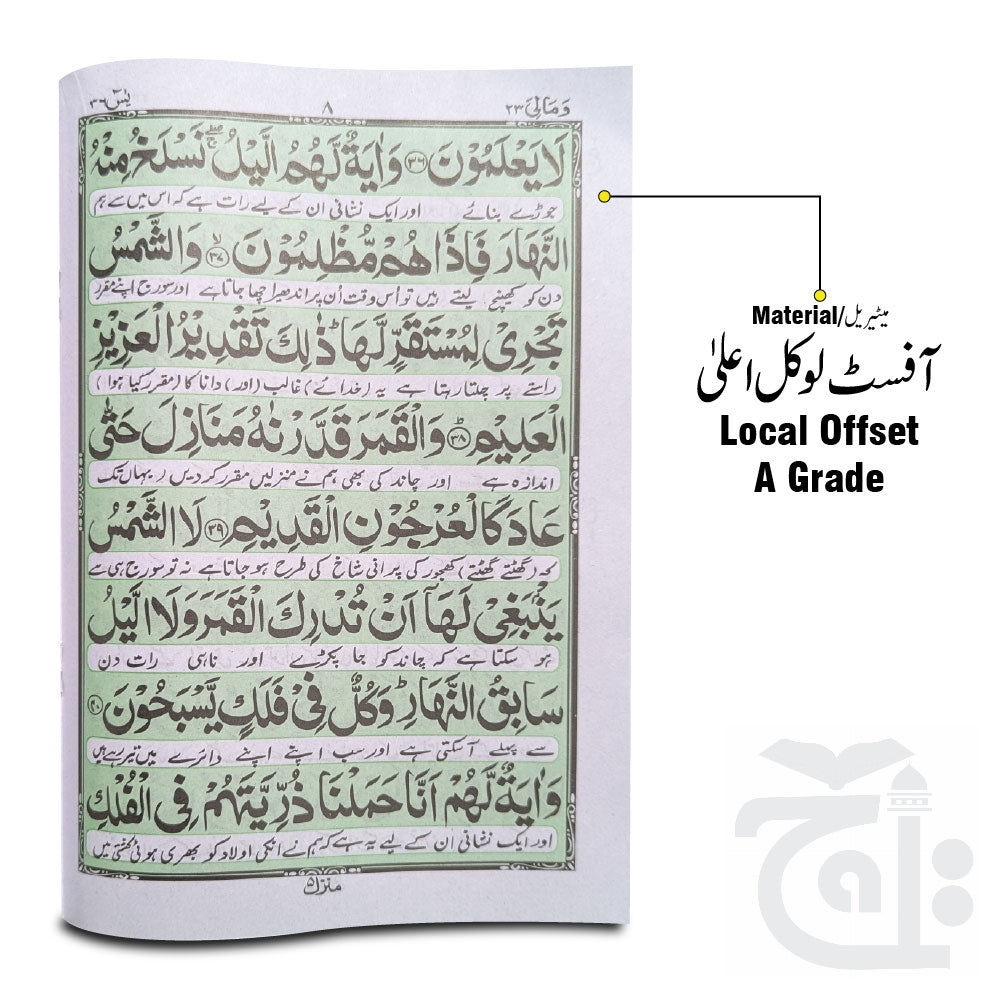 وَمَالِیَ ٢٣
٨
یٰسٓ ٣٦
لَا یَعْلَمُوْنَ ﴿٣٦﴾ وَاٰیَةٌ لَّهُمُ الَّیْلُ ۖۚ نَسْلَخُ مِنْهُ
جوڑے بنائے اور ایک نشانی ان کے لیے رات ہے کہ اس میں سے ہم
النَّهَارَ فَاِذَا هُمْ مُّظْلِمُوْنَ ﴿٣٧﴾ۙ وَالشَّمْسُ
دن کو کھینچ لیتے ہیں تو اُس وقت اُن پر اندھیرا چھا جاتا ہے اور سورج اپنے مقرر
تَجْرِیْ لِمُسْتَقَرٍّ لَّهَا ؕ ذٰلِكَ تَقْدِیْرُ الْعَزِیْزِ
راستے پر چلتا رہتا ہے یہ (خدائے) غالب (اور) دانا کا (مقرر کیا ہوا)
الْعَلِیْمِ ﴿٣٨﴾ؕ وَالْقَمَرَ قَدَّرْنٰهُ مَنَازِلَ حَتّٰی
اندازہ ہے اور چاند کی بھی ہم نے منزلیں مقرر کر دیں یہاں تک
عَادَ كَالْعُرْجُوْنِ الْقَدِیْمِ ﴿٣٩﴾ لَا الشَّمْسُ
کہ (گھٹتے گھٹتے) کھجور کی پرانی شاخ کی طرح ہو جاتا ہے نہ تو سورج ہی سے
یَنْۢبَغِیْ لَهَاۤ اَنْ تُدْرِكَ الْقَمَرَ وَلَا الَّیْلُ
ہو سکتا ہے کہ چاند کو جا پکڑے اور نا ہی رات دن
سَابِقُ النَّهَارِ ؕ وَكُلٌّ فِیْ فَلَكٍ یَّسْبَحُوْنَ ﴿٤٠﴾
سے پہلے آسکتی ہے اور سب اپنے اپنے دائرے میں تیر رہے ہیں
وَاٰیَةٌ لَّهُمْ اَنَّا حَمَلْنَا ذُرِّیَّتَهُمْ فِی الْفُلْكِ
اور ایک نشانی ان کے لیے یہ ہے کہ ہم نے انکی اولاد کو بھری ہوئی کشتی میں
منزل ٥
میٹیریل/Material
آفسٹ لوکل اعلیٰ
Local Offset
A Grade